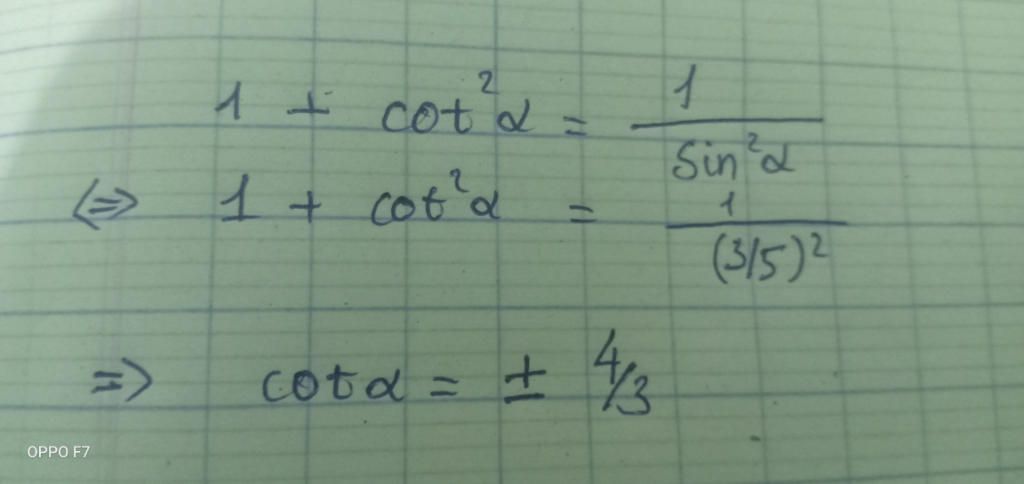 1 + cot²α = 1/sin²α
⇔ 1 + cot²α = 1/(3/5)²
⇒ cotα = ± 4/3
OPPO F7